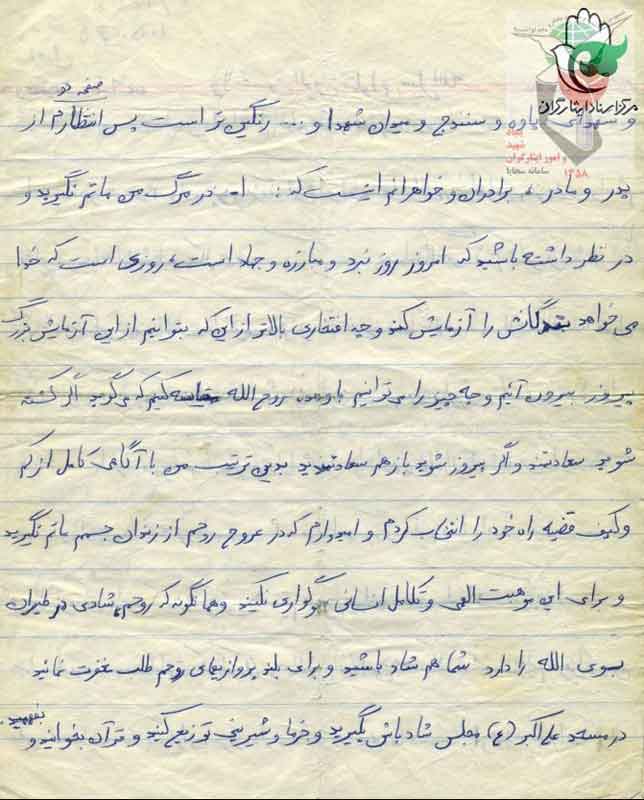 مرکز اسناد ایثارگران
بنیاد
شهید
و امور ایثارگران
۱۳۵۸
سامانه سجایا
صفحه دو
و شهدای پاوه و سنندج و میدان شهدا و ... رنگین تر است پس انتظارم از
پدر و مادر ، برادران و خواهرانم اینست که : ا- در مرگ من ماتم نگیرید و
در نظر داشته باشید که امروز روز نبرد و مبارزه و جهاد است، روزی است که خدا
می خواهد بندگانش را آزمایش کند و چه افتخاری بالاتر از این که بتوانیم از این آزمایش بزرگ
پیروز بیرون آئیم و چه چیز را می توانیم با وعده روح الله مقایسه کنیم که می گوید اگر کشته
شوید سعادتمند و اگر پیروز شوید باز هم سعادتمندید بدین ترتیب من با آگاهی کامل از کم
و کیف قضیه راه خود را انتخاب کردم و امیدوارم که در عروج روحم از زندان جسم ماتم نگیرید
و برای این موهبت الهی و تکامل انسانی سوگواری نکنید و همانگونه که روحم شادی در طیران
بسوی الله را دارد شما هم شاد باشید و برای بلند پروازیهای روحم طلب مغفرت نمائید
در مسجد علی اکبر (ع) مجلس شادباش بگیرید و خرما و شیرینی توزیع کنید و قرآن بخوانید و بفهمید